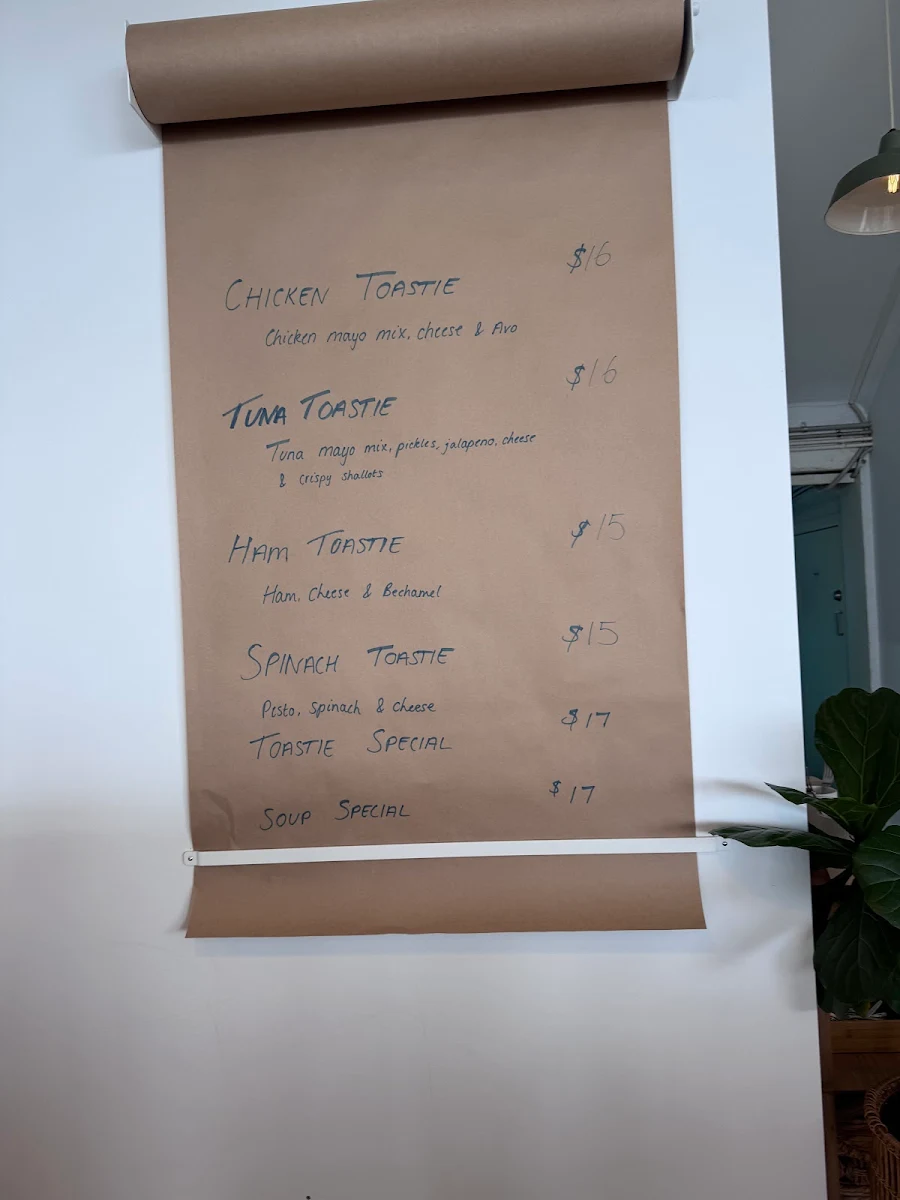 CHICKEN TOASTIE $16
Chicken mayo mix, cheese & Avo
TUNA TOASTIE $16
Tuna mayo mix, pickles, jalapeno, cheese
& crispy shallots
HAM TOASTIE $15
Ham, Cheese & Bechamel
SPINACH TOASTIE $15
Pesto, spinach & cheese
TOASTIE SPECIAL $17
SOUP SPECIAL $17